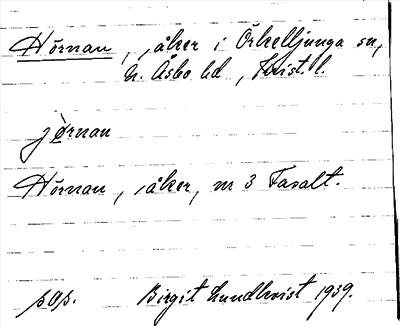 Hörnan, åker i Örkelljunga sn,
N. Åsbo hd, Krist. l.
jò̀rnan
Hörnan, åker, nr 3 Fasalt.
pop.   Birgit Lundkvist 1939.